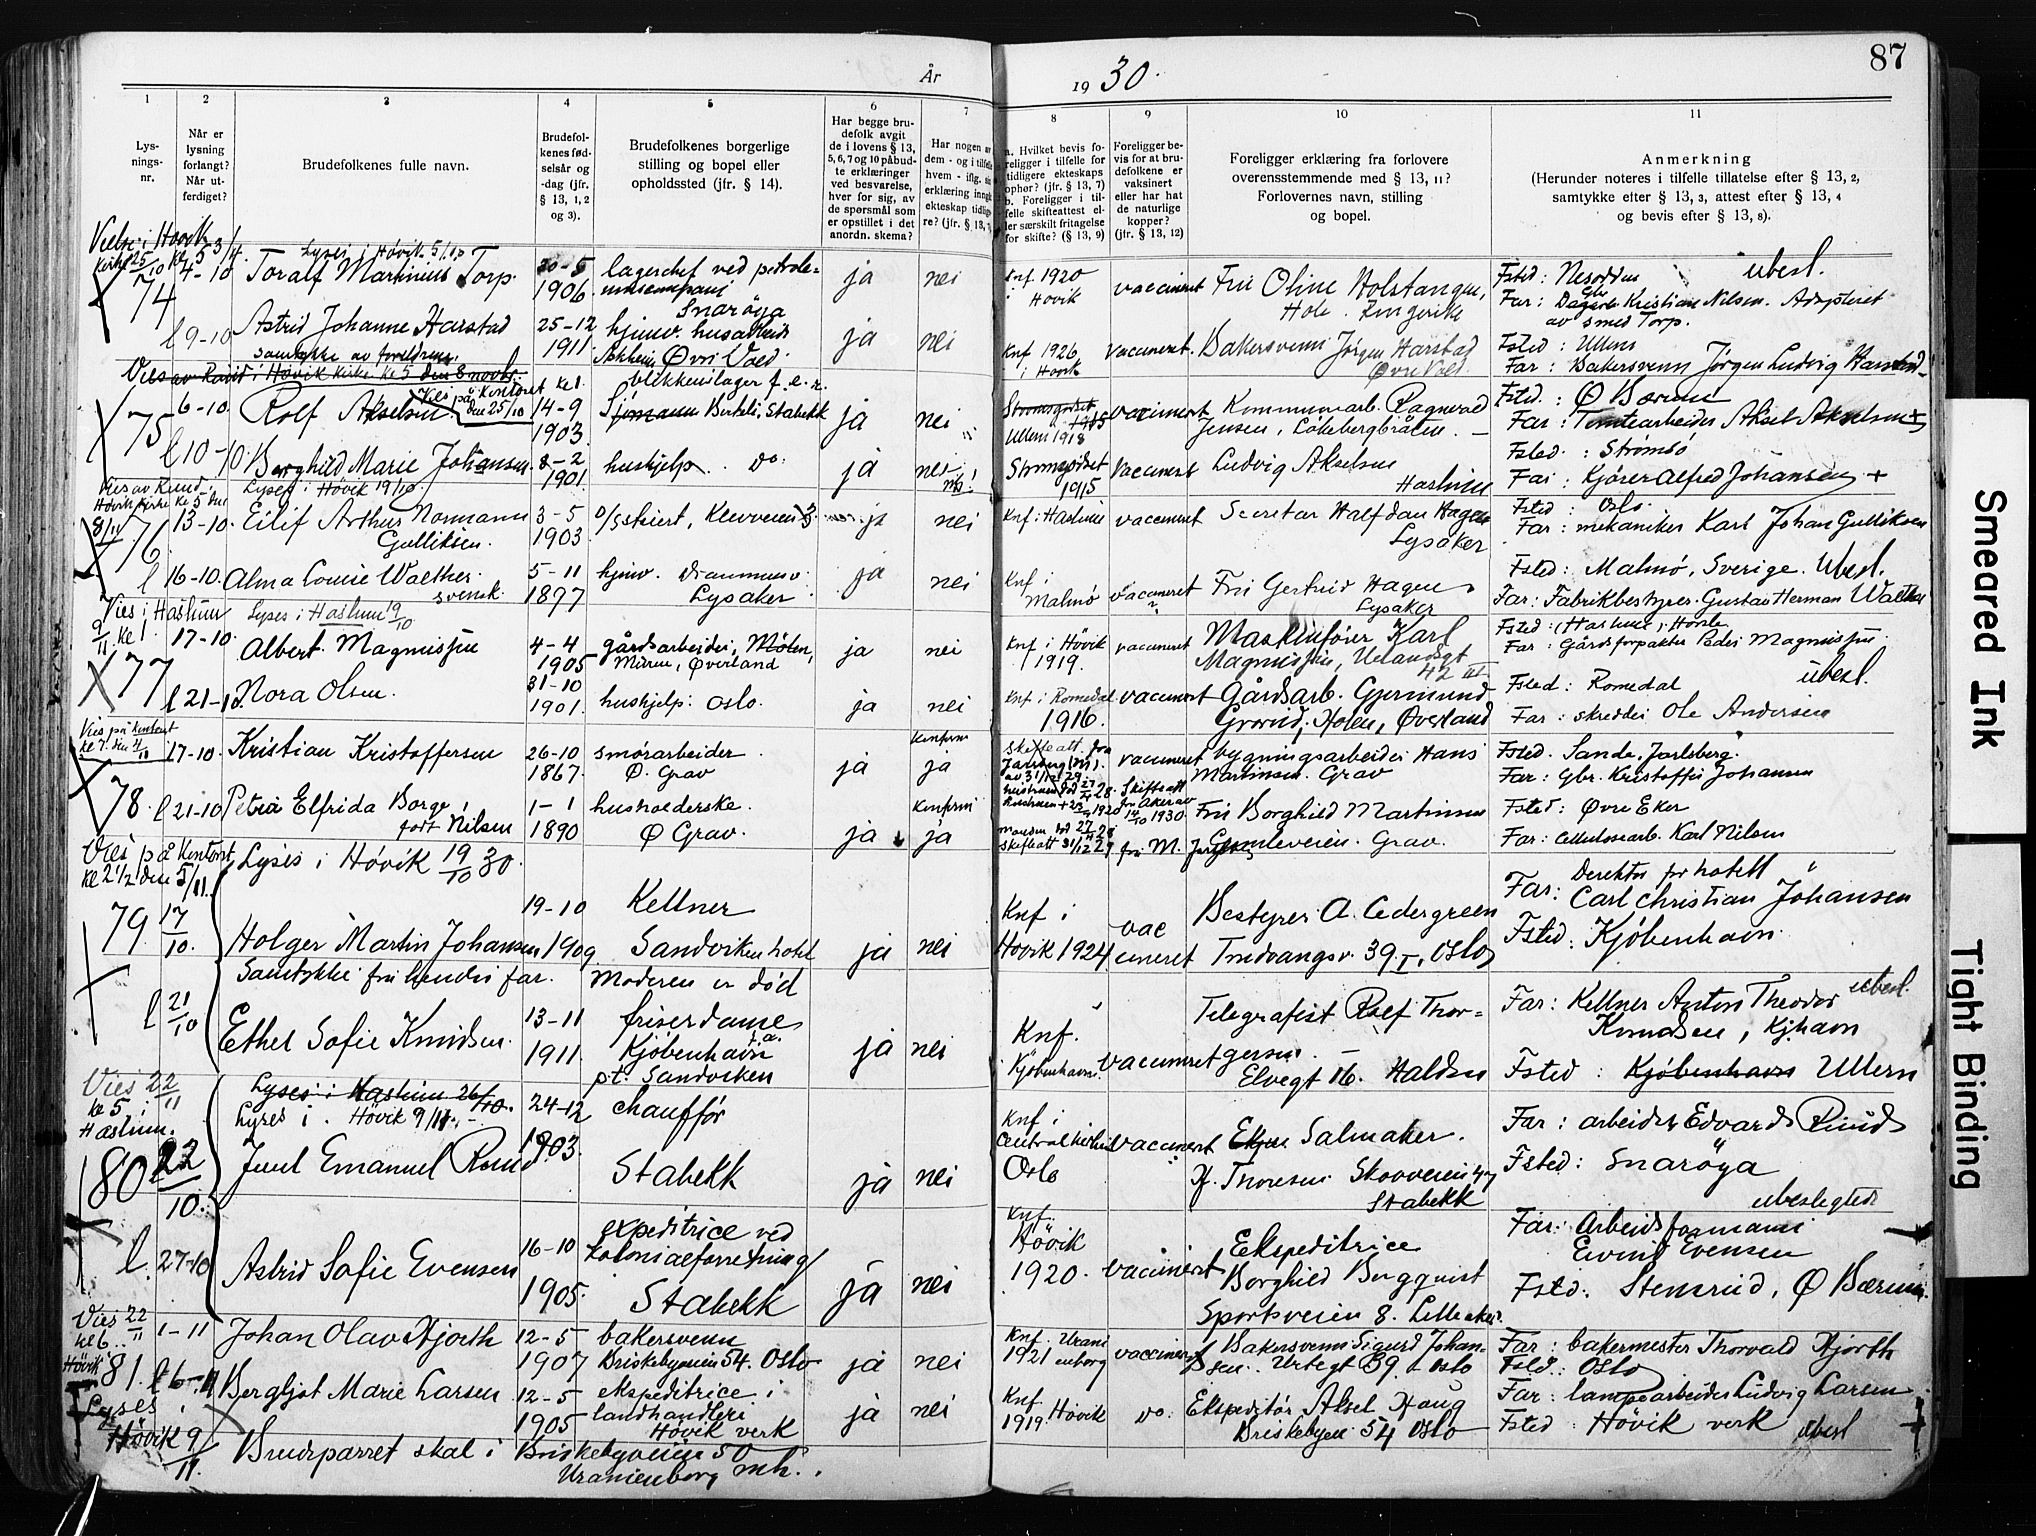 År
19 30.
87
1
2
3
4
5
6
7
8
9
10
11
Lys-
nings-
nr.
Når er
lysning
forlangt?
Når ut-
ferdiget?
Brudefolkenes fulle navn.
Brudefol-
kenes fød-
selsår og
-dag (jfr.
§ 13, 1, 2
og 3).
Brudefolkenes borgerlige
stilling og bopel eller
opholdssted (jfr. § 14).
Har begge bru-
defolk avgit
de i lovens § 13,
5, 6, 7 og 10 påbud-
te erklæringer
ved besvarelse,
hver for sig, av
de spørsmål som
er opstillet i det
anordn. skema?
Har nogen av
dem - og i tilfelle
hvem - iflg. sin
erklæring inngått
ekteskap tidlig
re? (jfr. § 13,
a. Hvilket bevis fo-
religger i tilfelle for
tidligere ekteskaps
ophør? (jfr. § 13, 7)
b. Foreligger i til-
felle skifteattest el-
ler særskilt fritagelse
for skifte? (§ 13, 9)
Foreligger be-
vis for at bru-
defolkene er
vaksinert
eller har hat
de naturlige
kopper?
(jfr. § 13, 12)
Foreligger erklæring fra forlovere
overensstemmende med § 13, 11?
Forlovernes navn, stilling
og bopel.
Anmerkning
(Herunder noteres i tilfelle tillatelse efter § 13, 2,
samtykke efter § 13, 3, attest efter § 13, 4
og bevis efter § 13, 8).
Lyses i Høvik 5/10
74
4-10
Toralf Martinius Torp.
30-5
1906.
lagerchef ved petrole=
umscompani
Snarøya
ja
nei
Knf 1920
i Høvik
vaccineret
Frii Oline Holstangen,
Hole. Ringerike
Fsted: Nesodden
ubesl.
Far: Gbr Kristian Nilsen. Adopteret
av smed Torp.
l 9-10
Astrid Johanne Harstad
samtykke av foreldrene.
25-12
1911
hjemv. husarbeid
Øvre Vold.
ja
nei
Knf 1926
i Høvik
vaccineret.
Bakersvenn Jørgen Harstad
Øvre Vold.
Fsted: Ullern
Far: Bakersvenn Jørgen Ludvig Harstad
Vies av Ruud i Høvik kirke kl 5 den 8 novbr.
Vies på Kontoret kl 1
den 25/10
75
6-10.
Rolf Akselsen
14-9
1903.
blikkenslager f. e. r.
Sjømann Berkeli, Stabekk
ja
nei
Strømsgodset
1915
Ullern 1918
vaccineret
Kommunearb. Ragnvald
Jensen, Løkebergbråten. —
Fsted: Ø Bærum
Far: Tomtearbeider Aksel Akselsen +
l 10-10.
Borghild Marie Johansen
8-2
1901
hushjelp. do.
ja
nei
Strømsgodset
1915
vaccineret
Ludvig Akselsen
Haslum
Fsted: Strømsø
Far: Kjører Alfred Johansen +
Vies av Ruud.
Høvik kirke kl 5 den
8/11
Lyses i Høvik 19/10
76
13-10.
Eilif Arthur Normann
Gulliksen.
3-5
1903.
ja
nei
Knf i Haslum
vaccineret
Secretær Halfdan Hagen
Lysaker
Fsted: Oslo.
Far: mekaniker Karl Johan Gulliksen
l 16-10.
Alma Louise Walther.
svensk.
5-11
1897
hjemv. Drammensv.
Lysaker
ja
nei
Knf i
Malmø
vaccineret
Frii Gertrud Hagen
Lysaker
Fsted: Malmø, Sverige. Ubesl.
Far: Fabrikbestyrer. Gustav Herman Walther
Vies i Haslum
9/11 kl 1.
Lyses i Haslum 19/10
77
17-10.
Albert Magnussen
4-4
1905
gårdsarbeider, Mølen,
Muren, Øverland
ja
nei
Knf i Høvik
1919.
vaccineret
Maskinfører Karl
Magnussen, Uelandsgt
42 III.
Far: Gårdsforpakter Peder Magnussen
ubesl.
l 21-10.
Nora Olsen.
31-10
1901.
hushjelp: Oslo.
ja
nei
Knf i Romedal
1916.
vaccineret
Gårdsarb. Gjermund
Grøvid, Holen, Øverland
Fsted: Romedal
Far: skredder Ole Andersen
Vies på Kontoret
kl 7. den 4/11
78.
17-10.
Kristian Kristoffersen
26-10
1867.
smørarbeider
Ø. Grav
ja
ja
vaccineret
bygningsarbeider Hans
Martinsen. Grav
Fsted. Sande, Jarlsberg.
Far: Gbr. Kristoffer Johansen
l 21-10
Petra Elfrida Borge,
født Nilsen
1-1
1890
husholderske.
Ø Grav.
ja
ja
Frii Borghild Martinsen
Gamleveien. Grav.
Fsted: Øvre Eker
Far: Cellulosearb. Karl Nilsen
Vies på Kontoret
kl 2 1/2 den 5/11.
Lyses i Høvik 19/10 30.
79.
17/10.
Holger Martin Johansen
19-10
1909.
Kellner
Sandviken hotel
ja
nei
Knf i
Høvik 1924
vac
cineret
Bestyrer A. Cedergreen
Trudvangsv. 39 I, Oslo
Far: Direktør for hotell
Carl Christian Johansen
Fsted: Kjøbenhavn.
Samtykke fra hendes far. Moderen er død
l 21/10
Ethel Sofie Knudsen.
13-11
1911.
friserdame
Kjøbenhavn
p.t. Sandviken
ja
nei
Knf.
i Kjøbenhavn.
vaccineret
Telegrafist Rolf Thor=
gersen. —
Elvegt 16. Halden
Far: Kellner Anton Theodor
ubesl.
Knudsen, Kjhavn
Fsted: Kjøbenhavn Ullern
Vies 22/11
kl 5. i
Haslum.
Lyses i Haslum 26/10.
Lyses i. Høvik 9/11.
80
22/10.
Juul Emanuel Ruud
24-12
1903.
chauffør
Stabekk
ja
nei
Knf i
Centralkirken
Oslo
vaccineret
Salmaker.
H. Thoresen Skovveien 47
Stabekk
Far: arbeider Edvard Ruud
Fsted: Snarøya
ubeslegted
l. 27-10
Astrid Sofie Evensen
16-10
1905.
expeditrice ved
kolonialforretning
Stabekk
ja
nei
Knf
Høvik
1920.
vaccineret
Ekspeditrice
Borghild Bergqvist
Sportsveien 8. Lilleaker.
Far: Arbeidsformann
Eivind Evensen
Fsted. Stensrud, Ø Bærum.
Vies 22/11
kl 6..
Høvik
81.
1-11
Johan Olav Hjorth
12-5
1907
bakersvenn
Briskebyveien 54. Oslo
ja
nei
Knf. Urani
1921 enborg
vaccineret
Bakersvenn Sigurd Johan-
sen. Urtegt 39. Oslo
Far: bakermester Thorvald Hjorth
Fsted: Oslo
l 6-11
Bergljot Marie Larsen
12-5
1905
ekspeditrice i
landhandleri
Høvik verk
ja
nei
Knf
1919. Høvik
do.
Ekspeditør Aksel Haug
Briskebyen 54 Oslo
Far: lampearbeider Ludvig Larsen
Fsted: Høvik verk
ubesl
Lyses i
Høvik 9/11.
Brudeparret skal i Briskebyveien 50
Uranienborg mh.
Smeared Ink
Tight Binding